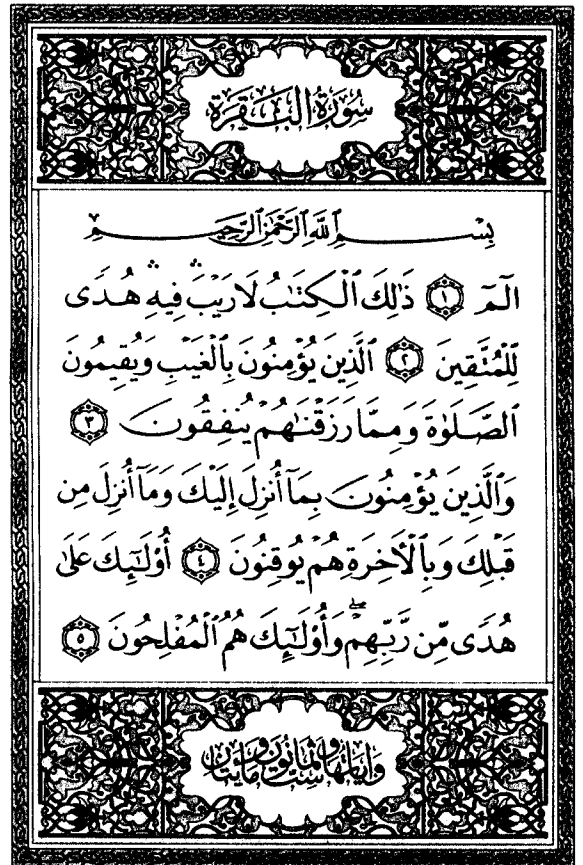 سُورَةُ البَقَرَةِ
بِسْمِ ٱللَّهِ ٱلرَّحْمَٰنِ ٱلرَّحِيمِ
الٓمٓ ١ ذَٰلِكَ ٱلْكِتَٰبُ لَا رَيْبَۛ فِيهِۛ هُدًى
لِّلْمُتَّقِينَ ٢ ٱلَّذِينَ يُؤْمِنُونَ بِٱلْغَيْبِ وَيُقِيمُونَ
ٱلصَّلَوٰةَ وَمِمَّا رَزَقْنَٰهُمْ يُنفِقُونَ ٣
وَٱلَّذِينَ يُؤْمِنُونَ بِمَآ أُنزِلَ إِلَيْكَ وَمَآ أُنزِلَ مِن
قَبْلِكَ وَبِٱلْأَخِرَةِ هُمْ يُوقِنُونَ ٤ أُو۟لَٰٓئِكَ عَلَىٰ
هُدًى مِّن رَّبِّهِمْۖ وَأُو۟لَٰٓئِكَ هُمُ ٱلْمُفْلِحُونَ ٥
وَآيَاتُهَا سِتٌّ وَثَمَانُونَ وَمِائَتَانِ